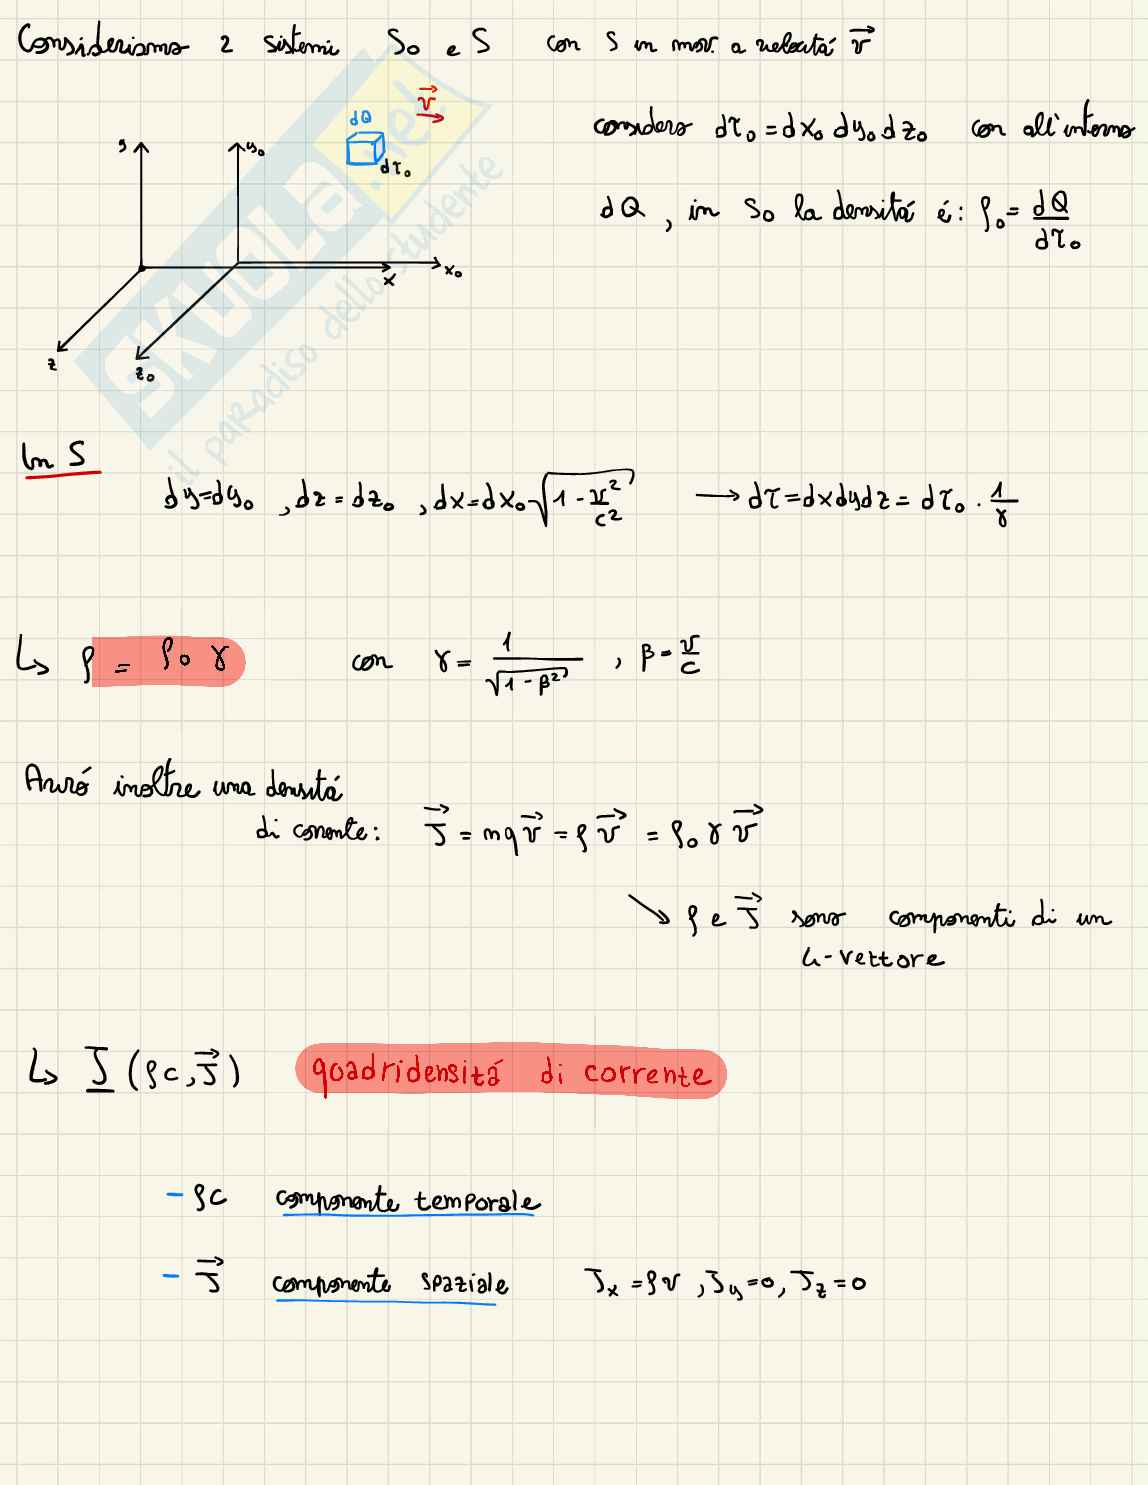 Consideriamo 2 sistemi S₀ e S con S in mov. a velocitá v⃗
dQ v⃗
considero dτ₀ = dx₀ dy₀ dz₀ con all'interno
y y₀ dτ₀
dQ, in S₀ la densitá é: ρ₀ = dQ/dτ₀
x x₀
z z₀
SKUOLA.net
il paradiso dello studente
In S
dy=dy₀, dz=dz₀, dx=dx₀√(1 - v²/c²) → dτ=dxdydz= dτ₀ · 1/γ
↳ ρ = ρ₀ γ con γ = 1/√(1-β²), β = v/c
Avró inoltre una densitá
di corrente: J⃗ = nqv⃗ = ρv⃗ = ρ₀γv⃗
↘ ρ e J⃗ sono componenti di un
4-vettore
↳ J (ρc, J⃗) quadridensitá di corrente
- ρc componente temporale
- J⃗ componente spaziale Jₓ = ρv, J_y = 0, J_z = 0